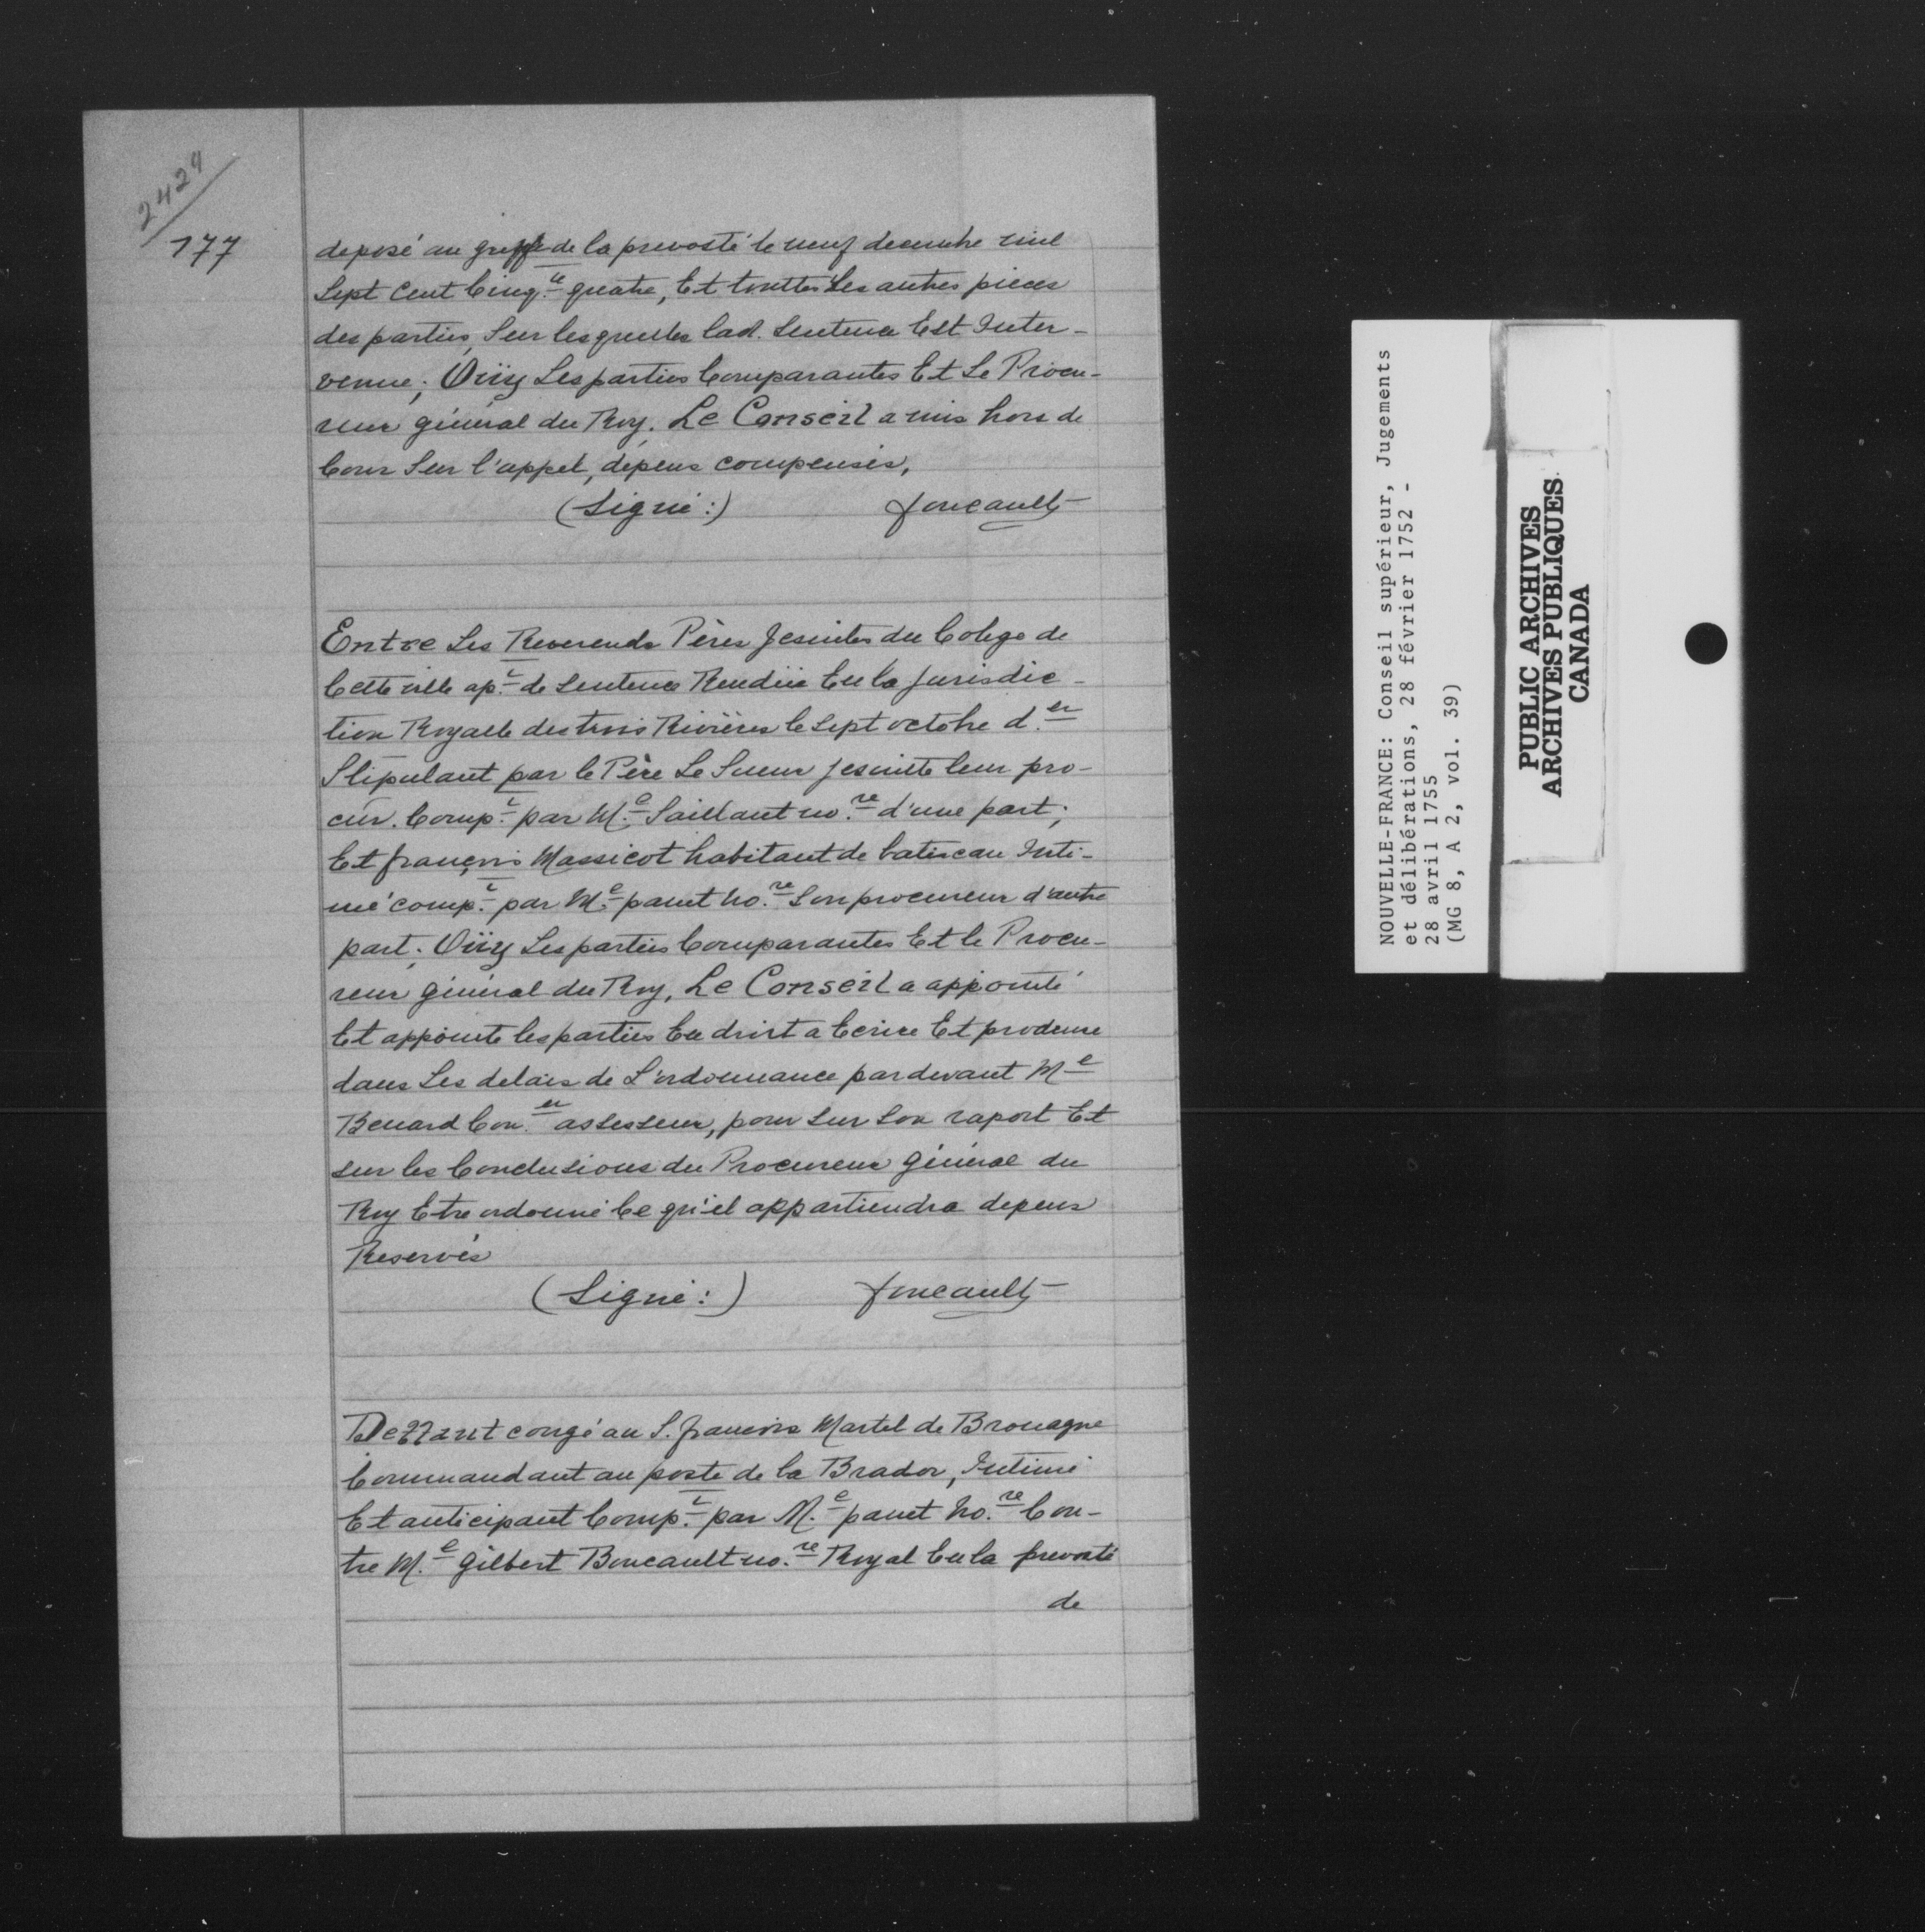 2424
177
deposé au greffe de la prevosté le neuf decembre mil
Sept Cent Cinq.te quatre, Et touttes Les autres pieces
des parties, Sur lesquelles lad. Sentence Est Inter-
venue; Oüy Les parties Comparantes Et Le Procu-
reur général du Roy. Le Conseil a mis hors de
Cour Sur l'appel, dépens compensés,
(Signé:) foucault
Entre Les Reverends Pères Jesuites du Colege de
Cette ville ap.t de Sentence Rendüe En la Jurisdic-
tion Royalle des trois Rivières le Sept octobre d.er
Stipulant par le Père Le Sueur jesuite leur pro-
cur. Comp.t par M.e Saillant no.re d'une part;
Et françois Massicot habitant de batiscan Inti-
mé comp.t par M.e panet no.re Son procureur d'autre
part; Oüy Les parties Comparantes Et le Procu-
reur général du Roy, Le Conseil a appointé
Et appointe les parties En droit a Ecrire Et produire
dans Les delais de L'ordonnance pardevant Me
Benard Con.er assesseur, pour sur Son raport Et
sur les Conclusions du Procureur Général du
Roy Etre ordonné Ce qu'il appartiendra depens
Reservés
(Signé:) foucault
Deffaut congé au S. françois Martel de Brouague
Commandant au poste de la Brador, Intimé
Et anticipant Comp.t par M.e panet no.re Con-
tre M.e Gilbert Boucault no.re Royal En la prevosté
de
NOUVELLE-FRANCE: Conseil supérieur, Jugements
et délibérations, 28 février 1752 -
28 avril 1755
(MG 8, A 2, vol. 39)
PUBLIC ARCHIVES
ARCHIVES PUBLIQUES
CANADA